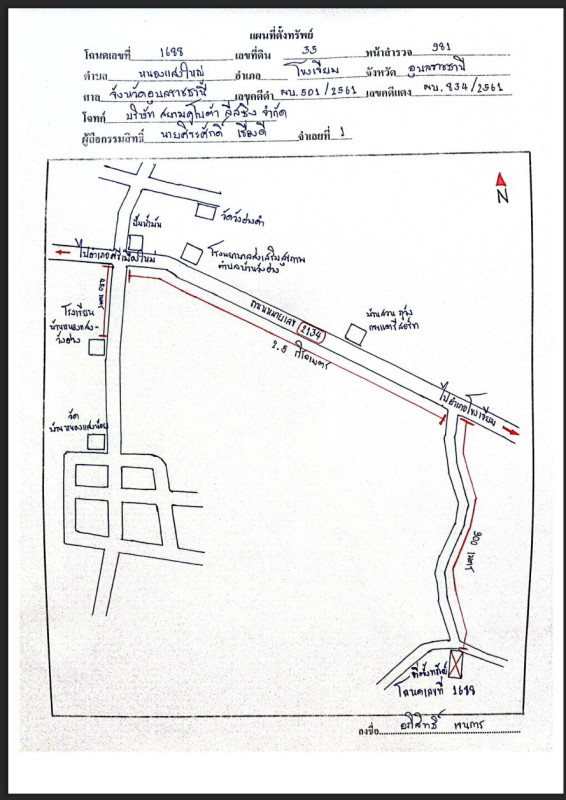 แผนที่ตั้งทรัพย์
โฉนดเลขที่ 1688 เลขที่ดิน 35 หน้าสำรวจ 981
ตำบล หนองแสงใหญ่ อำเภอ โขงเจียม จังหวัด อุบลราชธานี
ศาล จังหวัดอุบลราชธานี เลขคดีดำ ผบ.501/2561 เลขคดีแดง ผบ.834/2561
โจทก์ บริษัท สยามคูโบต้า ลีสซิ่ง จำกัด
ผู้ถือกรรมสิทธิ์ นายศิระศักดิ์ เชื่องดี จำเลยที่ 1
N
วัดวังอ่างคำ
ปั๊มน้ำมัน
ไปอำเภอศรีเมืองใหม่
โรงพยาบาลส่งเสริมสุขภาพ
ตำบลบ้านวังอ่าง
โรงเรียน
บ้านหนองแสง-
วังอ่าง
เมตร
ถนนหมายเลข 2134
2.5 กิโลเมตร
บ้านสวน
รีสอร์ท
ไปอำเภอโขงเจียม
วัด
บ้านหนองแสงน้อย
900 เมตร
ที่ตั้งทรัพย์
โฉนดเลขที่ 1688
ลงชื่อ อภิสิทธิ์